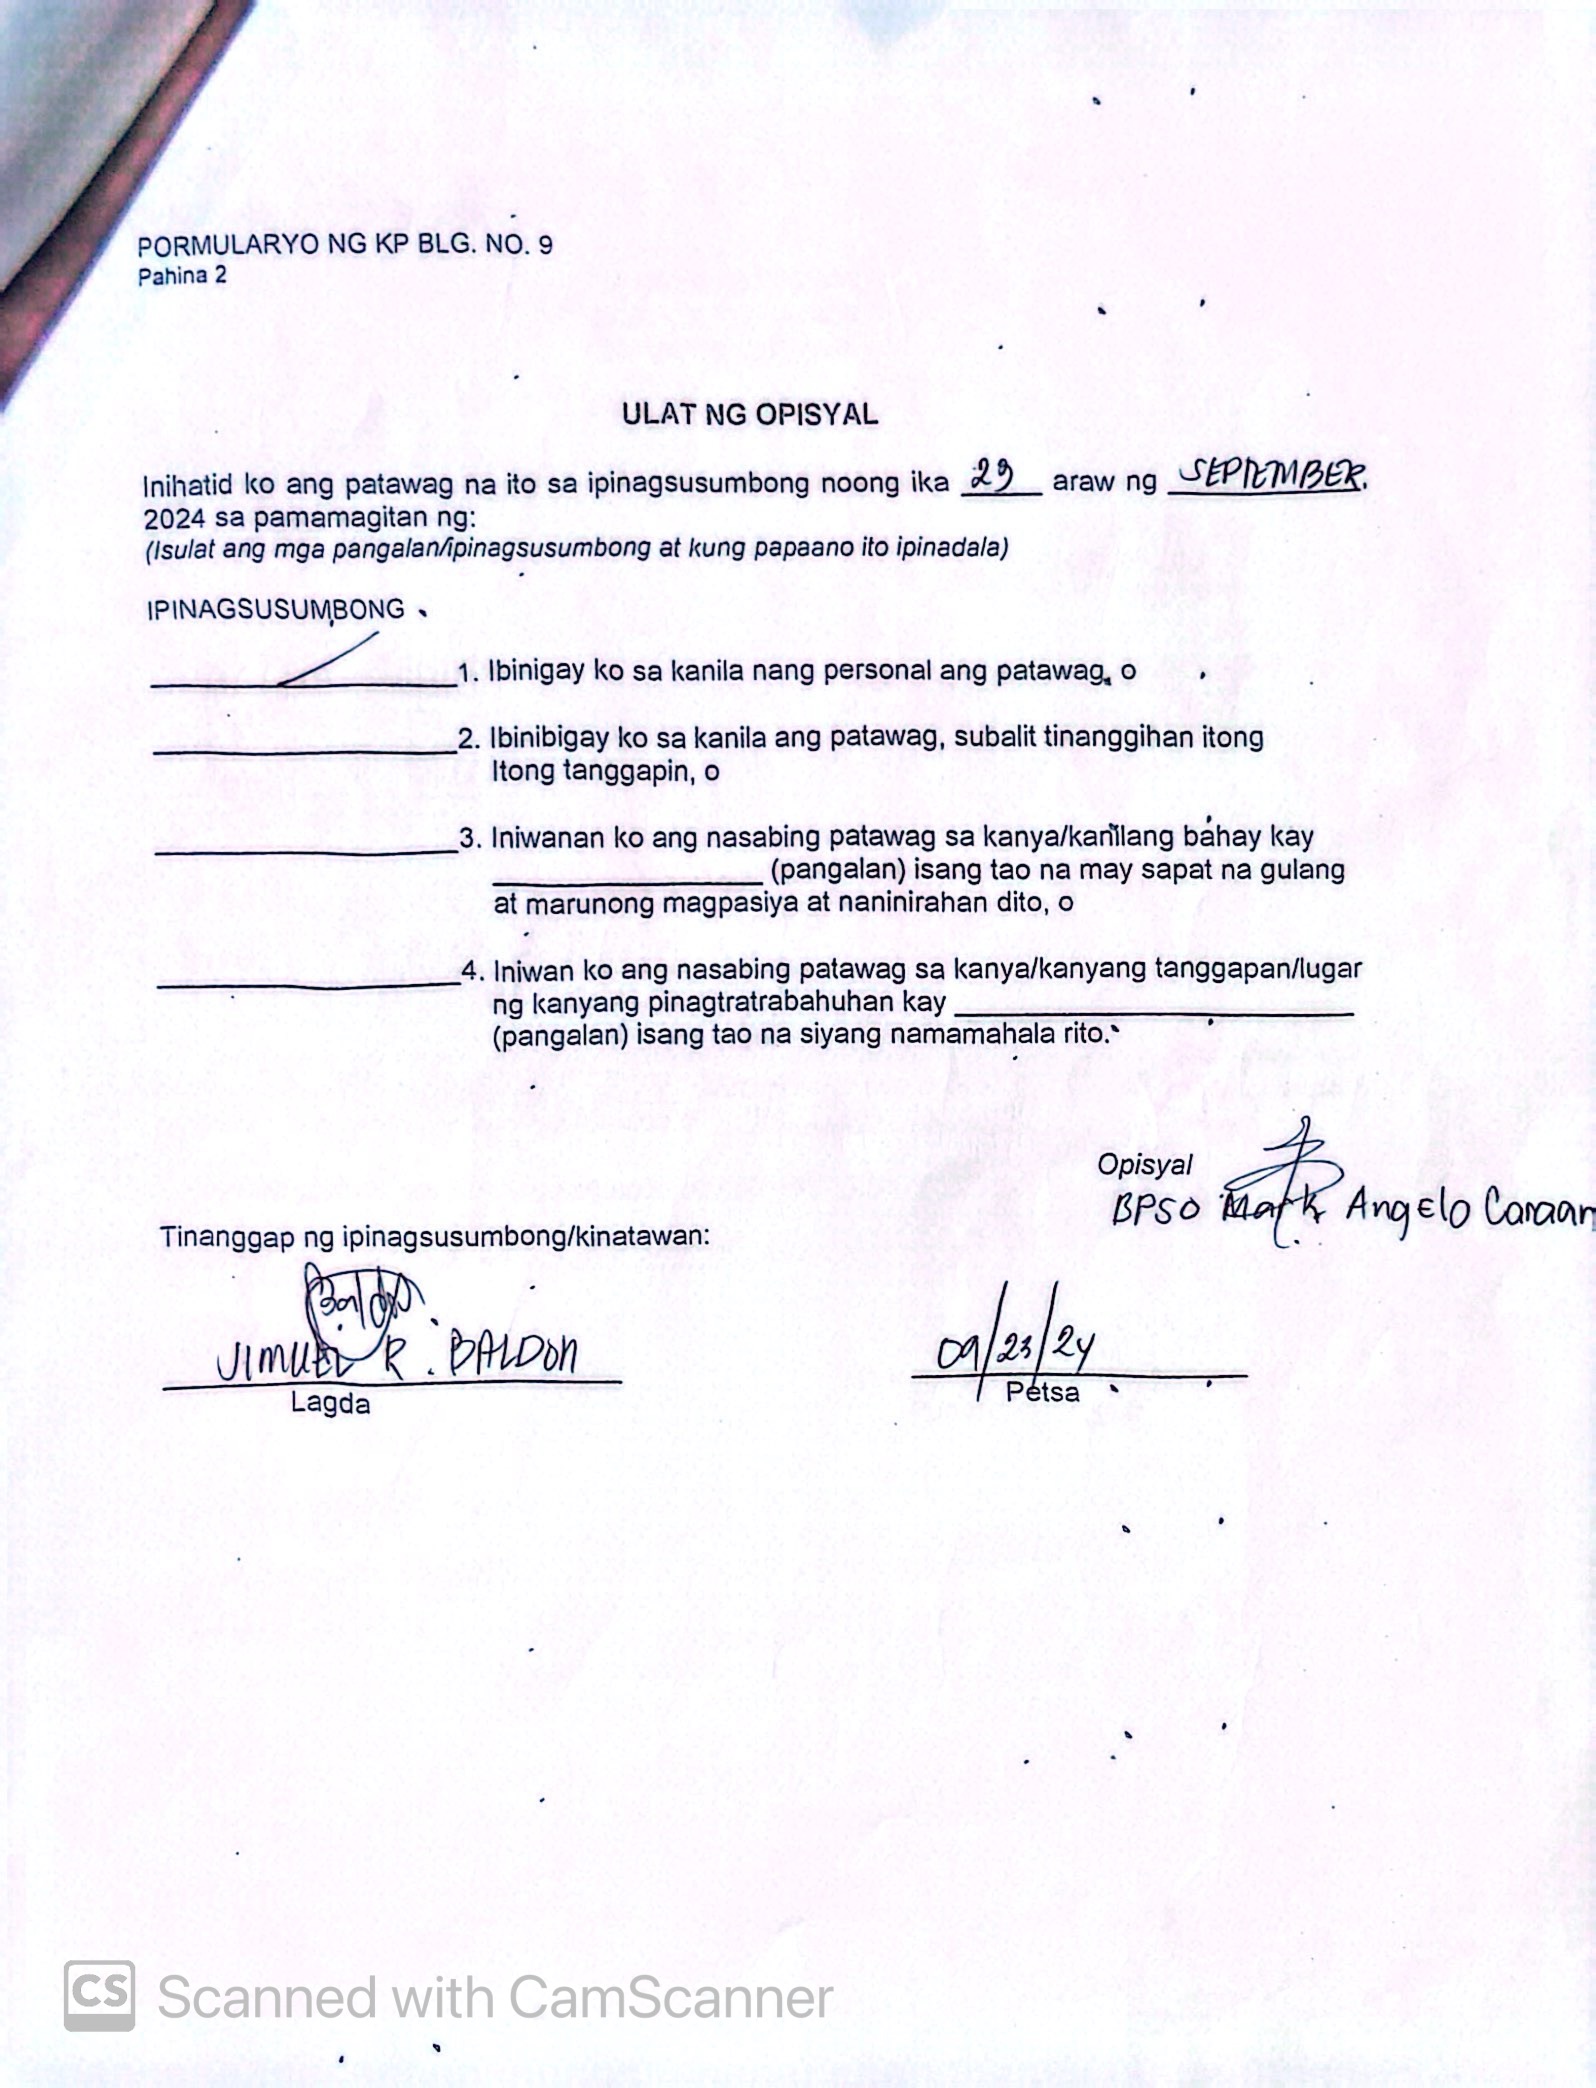 PORMULARYO NG KP BLG. NO. 9
Pahina 2
ULAT NG OPISYAL
Inihatid ko ang patawag na ito sa ipinagsusumbong noong ika 29 araw ng SEPTEMBER.
2024 sa pamamagitan ng:
(Isulat ang mga pangalan/ipinagsusumbong at kung papaano ito ipinadala)
IPINAGSUSUMBONG
1. Ibinigay ko sa kanila nang personal ang patawag, o
2. Ibinibigay ko sa kanila ang patawag, subalit tinanggihan itong
Itong tanggapin, o
3. Iniwanan ko ang nasabing patawag sa kanya/kanilang bahay kay
(pangalan) isang tao na may sapat na gulang
at marunong magpasiya at naninirahan dito, o
4. Iniwan ko ang nasabing patawag sa kanya/kanyang tanggapan/lugar
ng kanyang pinagtratrabahuhan kay
(pangalan) isang tao na siyang namamahala rito.
Opisyal
BPSO Mark Angelo Caraan
Tinanggap ng ipinagsusumbong/kinatawan:
JIMUEL R. BALDON
09/23/24
Lagda
Petsa
CS Scanned with CamScanner